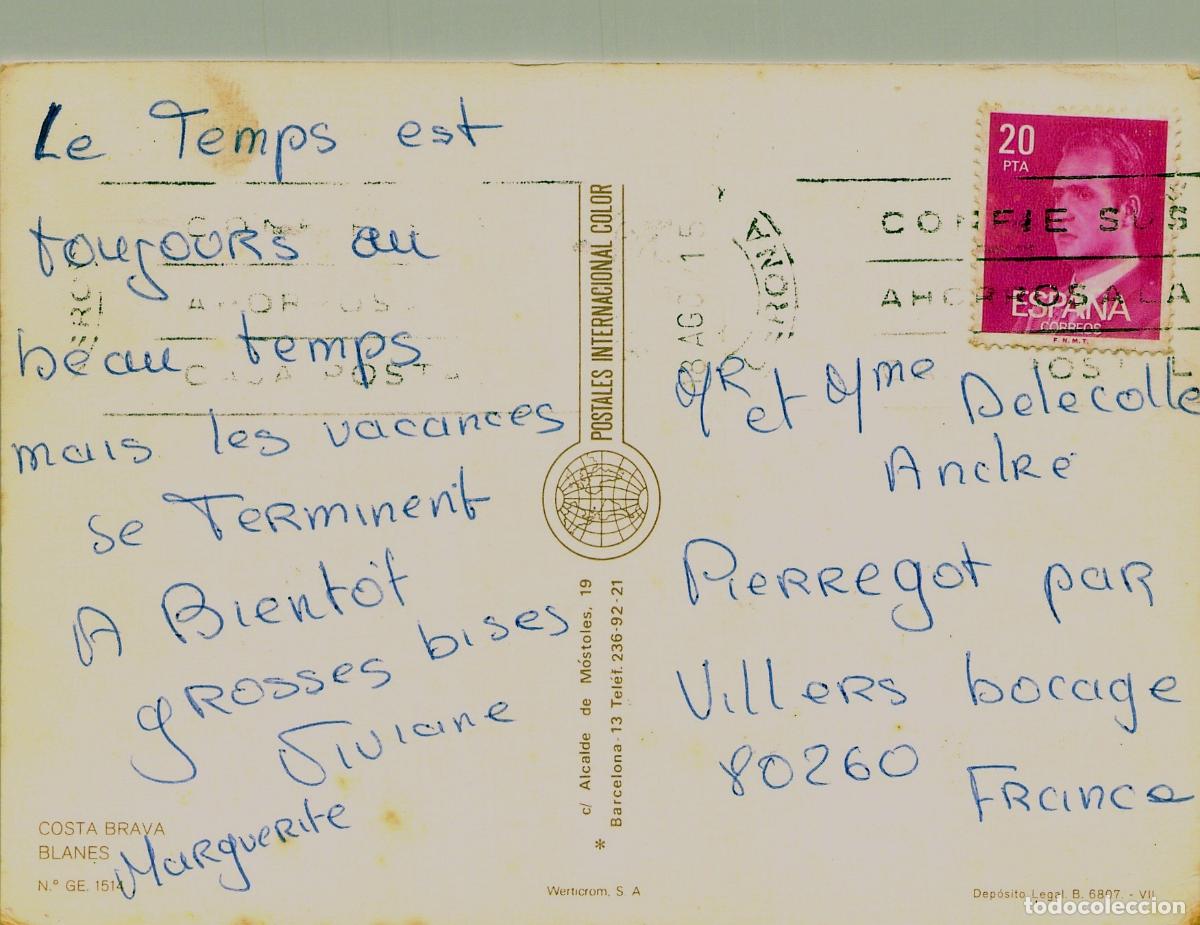 Le Temps est
toujours au
beau temps
mais les vacances
se Terminent
A Bientôt
grosses bises
Viviane
Marguerite
COSTA BRAVA
BLANES
N.º GE. 1514
POSTALES INTERNACIONAL COLOR
c/ Alcalde de Móstoles, 19
Barcelona-13 Teléf. 236-92-21
*
Werticrom, S. A
20
PTA
ESPAÑA
CORREOS
F.N.M.T.
CONFIE SUS
AHORROS A LA
POSTAL
AHORROS
CAJA POST
8 AGO
GERONA
Mr et Mme Delecolle
André
Pierregot par
Villers bocage
80260
France
Depósito Legal B. 6807. - VII
todocoleccion